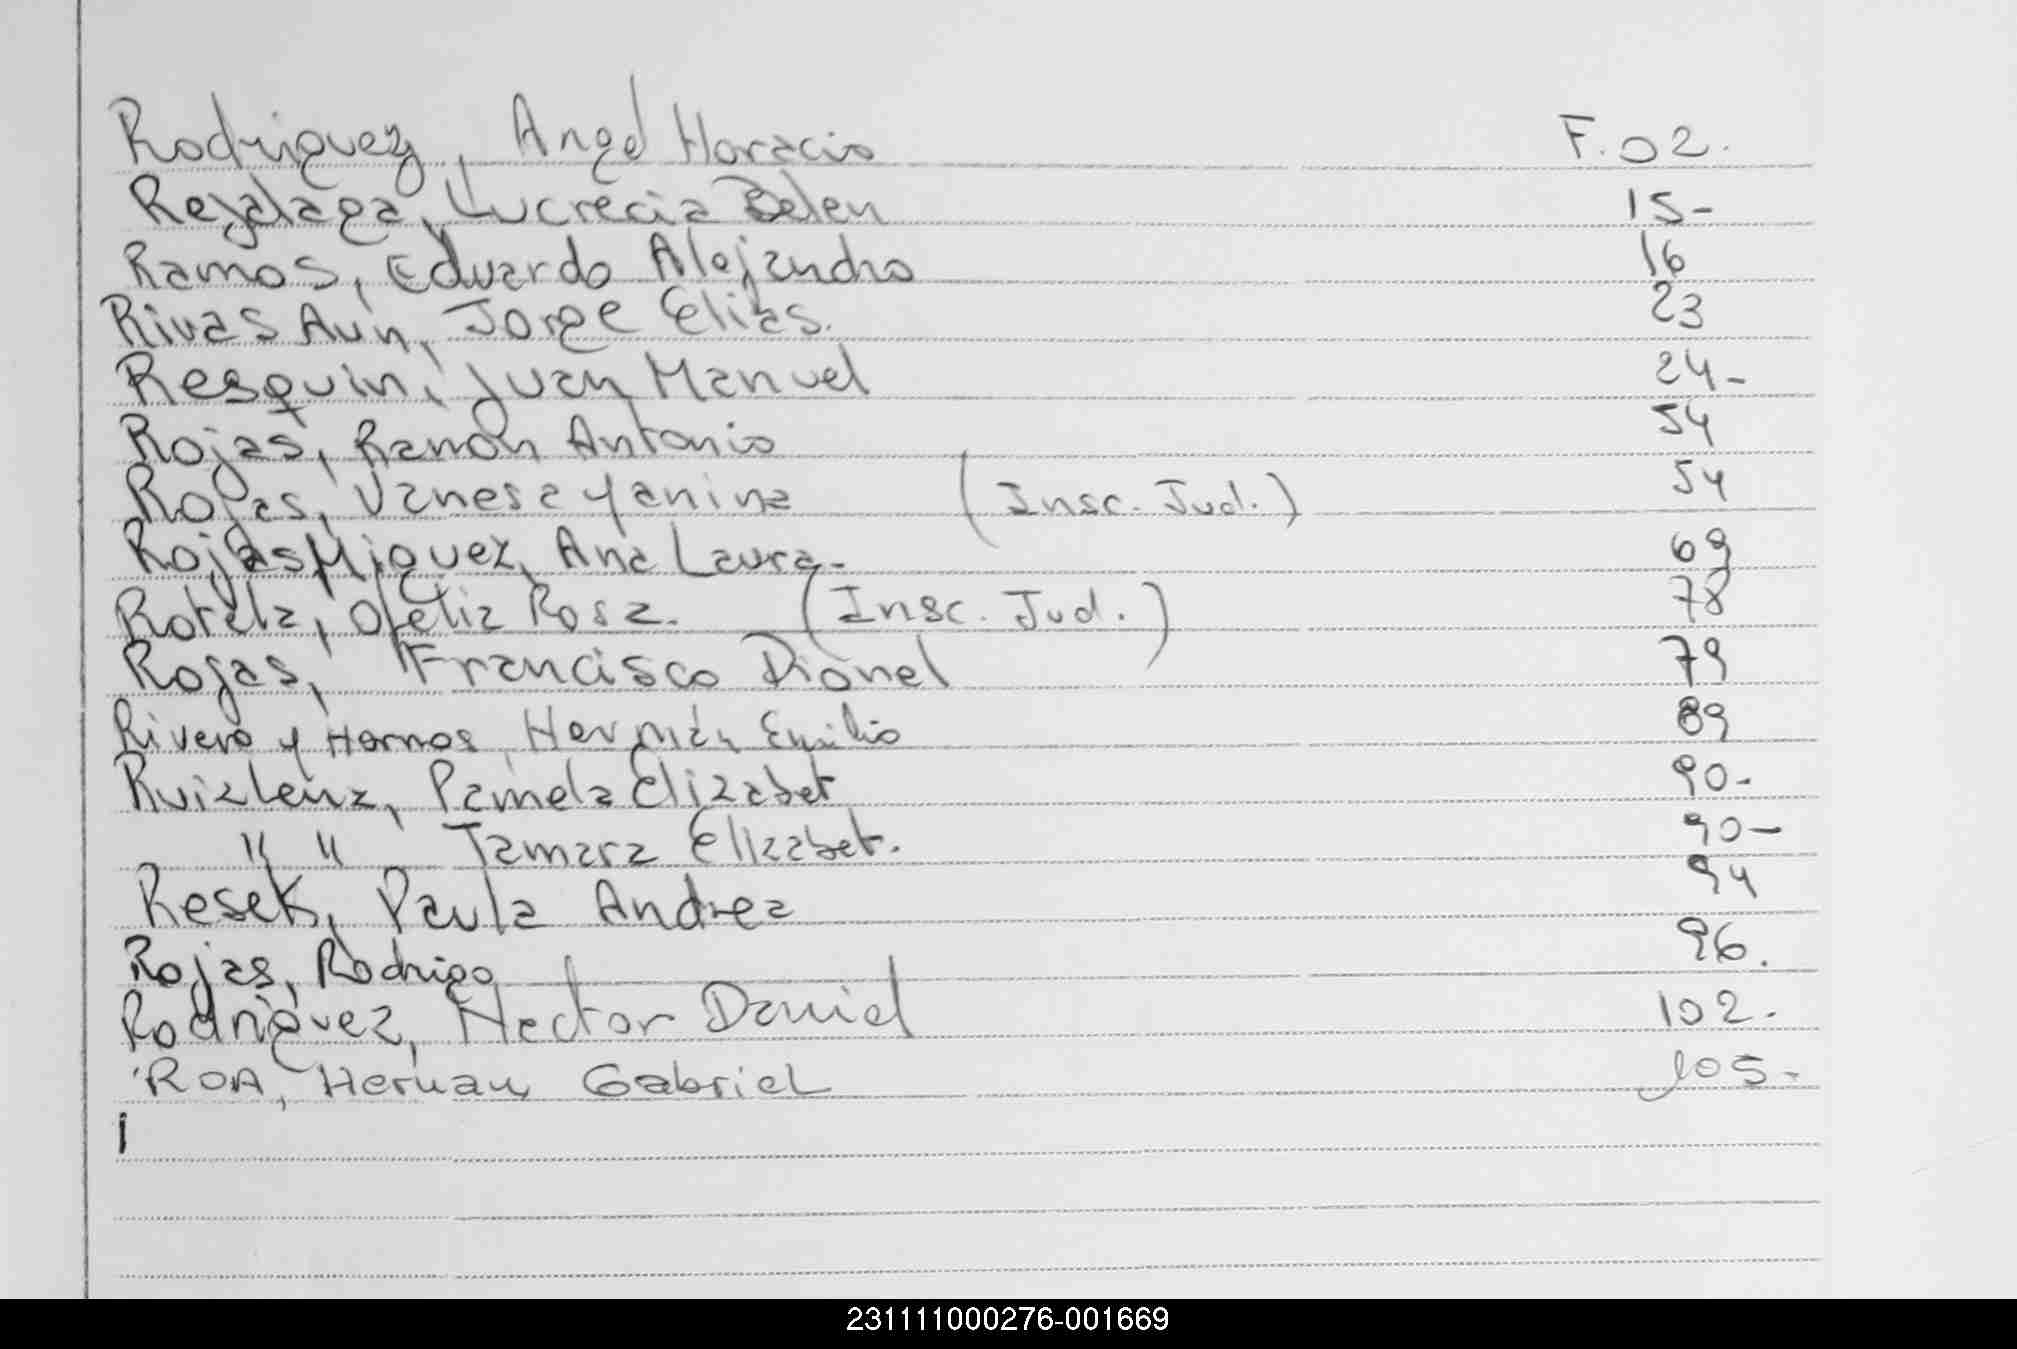 Rodriguez, Angel Horacio F. 02.
Rejalaga, Lucrecia Belen 15-
Ramos, Eduardo Alejandro 16
Rivas Aun, Jorge Elias. 23
Resquin, Juan Manuel 24-
Rojas, Ramon Antonio 54
Rojas, Vanesa Yanina (Insc. Jud.) 54
Rojas Miguez, Ana Laura- 69
Rotela, Ofelia Rosa. (Insc. Jud.) 78
Rojas, Francisco Dionel 79
Rivero y Hornos, Hernán Emilio 89
Ruiz Lena, Pamela Elizabet 90-
" " Tamara Elizabet. 90-
Resek, Paula Andrea 94
Rojas, Rodrigo 96.
Rodriguez, Hector Daniel 102.
ROA, Hernan Gabriel 105-
231111000276-001669